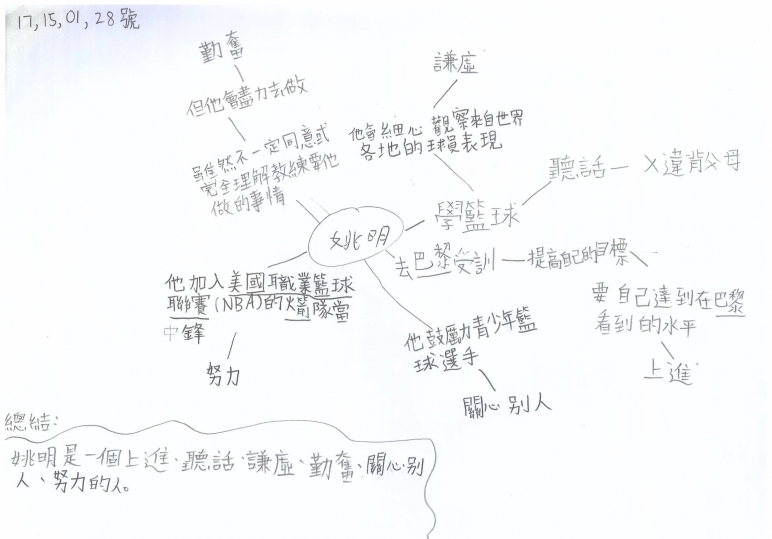 17, 15, 01, 28號
勤奮
但他會盡力去做
雖然不一定同意或
完全理解教練要他
做的事情
謙虛
他會細心觀察來自世界
各地的球員表現
聽話 — X違背父母
學籃球
姚明
去巴黎受訓 — 提高自己的目標
要自己達到在巴黎
看到的水平
上進
他加入美國職業籃球
聯賽(NBA)的火箭隊當
中鋒
努力
他鼓勵青少年籃
球選手
關心別人
總結:
姚明是一個上進、聽話、謙虛、勤奮、關心別
人、努力的人。